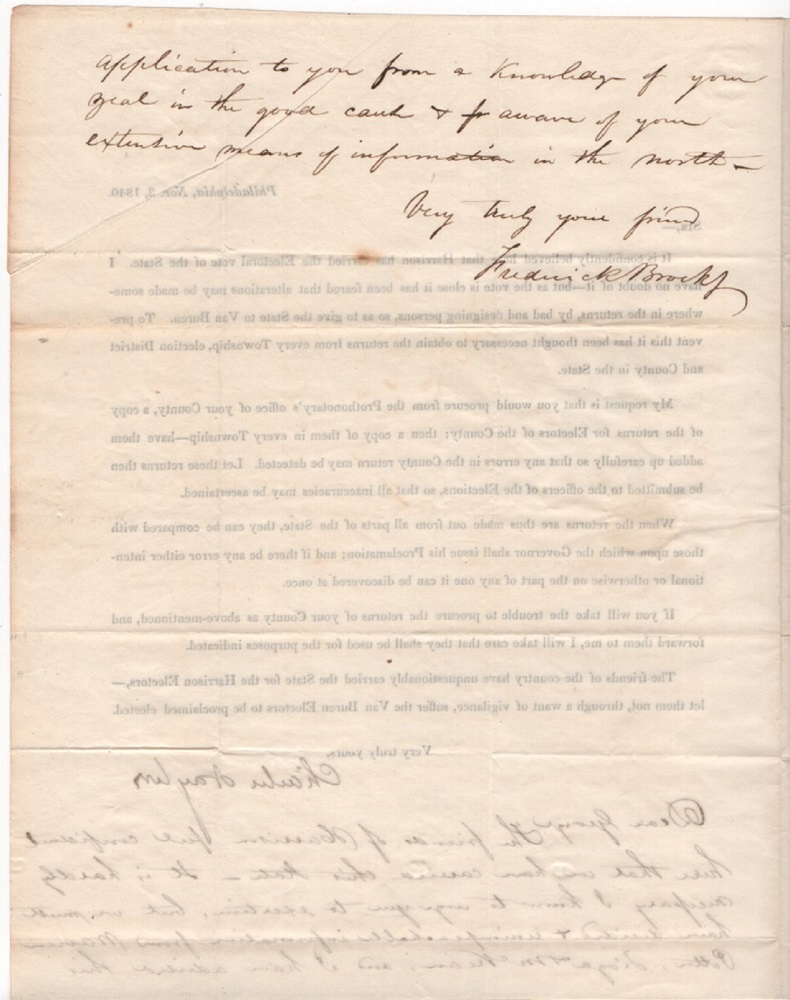 application to you from a knowledge of your
zeal in the good cause & aware of your
extensive means of information in the north –
Very truly your friend
Frederick Brocks
Philadelphia, Nov. 3, 1840.
SIR,—
It is confidently believed here that Harrison has carried the Electoral vote of the State. I
have no doubt of it—but as the vote is close it has been feared that alterations may be made some-
where in the returns, by bad and designing persons, so as to give the State to Van Buren. To pre-
vent this it has been thought necessary to obtain the returns from every Township, election District
and County in the State.
My request is that you would procure from the Prothonotary's office of your County, a copy
of the returns for Electors of the County; then a copy of them in every Township—have them
added up carefully so that any errors in the County return may be detected. Let these returns then
be submitted to the officers of the Elections, so that all inaccuracies may be ascertained.
When the returns are thus made out from all parts of the State, they can be compared with
those upon which the Governor shall issue his Proclamation; and if there be any error either inten-
tional or otherwise on the part of any one it can be discovered at once.
If you will take the trouble to procure the returns of your County as above-mentioned, and
forward them to me, I will take care that they shall be used for the purposes indicated.
The friends of the country have unquestionably carried the State for the Harrison Electors,—
let them not, through a want of vigilance, suffer the Van Buren Electors to be proclaimed elected.
Very truly yours,
Charles Naylor
Dear George The friends of Harrison feel confident
here that we have carried this State – It is hardly
necessary I know to urge you to exertion, but we must
have & information from
Potter, Tioga & McKean, and I have advised this